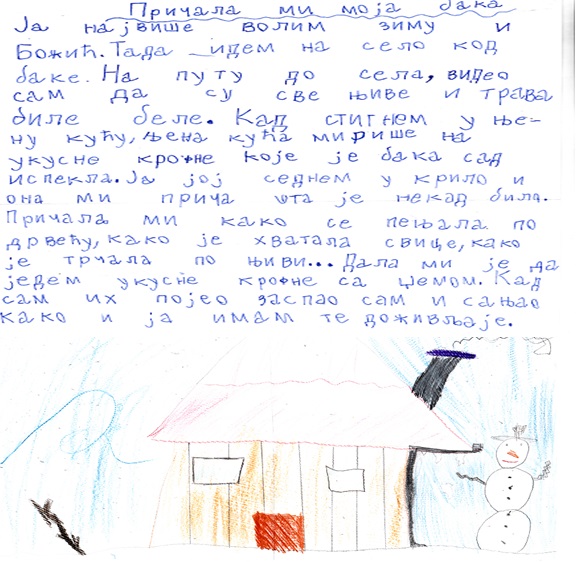 Причала ми моја бака
Ја највише волим зиму и
Божић. Тада идем на село код
баке. На путу до села, видео
сам да су све њиве и трава
биле беле. Кад стигнем у ње-
ну кућу, њена кућа мирише на
укусне крофне које је бака сад
испекла. Ја јој седнем у крило и
она ми прича шта је некад била.
Причала ми како се пењала по
дрвећу, како је хватала свице, како
је трчала по њиви... Дала ми је да
једем укусне крофне са џемом. Кад
сам их појео заспао сам и сањао
како и ја имам те доживљаје.